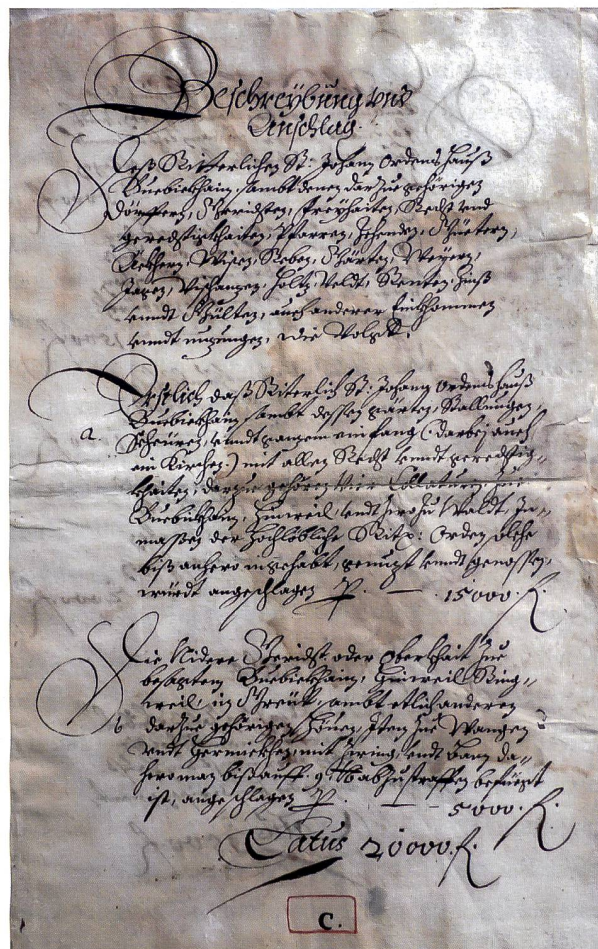 Beschreÿbung vnd
Anschlag.
Deß Ritterlichen St: Johanˉ Ordens Hauß
Buebickhain, sambt denen darzue gehörigen
Dörffern, Gerichten, Freÿhaiten, Recht vnd
gerechtigkhaiten, Pfarren, Zehenden, Güetern,
Äckhern, Wisen, Reben, Gärten, Weÿern,
Jagen, Vischenzen, Holtz, Veldt, Renten, Zinß
vnndt Gülten, auch anderer Einkhommen
vnndt nuzungen, wie Volgt.
Erstlich daß Riterlich St: Johanˉ Ordens Hauß
Buebickhain sambt dessen gärten, Stallungen
a. Scheüren, vnndt ganzem einfang (: darbeÿ auch
ein Kirchen :) mit allen Recht vnndt gerechtig-
khaiten, darzue gehören Vier Collaturen,
Buebickhain, Hinweil, vndt Waldt, In-
massen der Hochlobliche Ritr: Orden solche
biß anhero ingehabt, genuzt vnndt genossen,
würdt angeschlagen P. — 15000. f.
Die Nidere Gericht oder Oberkhait zue
besagtem Buebickhain, Hinweil, Ring-
weil, im Greüt, sambt etlich anderen
b darzue gehörigen Höuen, Item zue Wangen
vndt Hermickhen, mit Zwing vndt Bann da-
hero man biß auff 9 lb abzustraffen befüegt
ist, angeschlagen P. — 5000. f.
Latus 20000. f.
C.